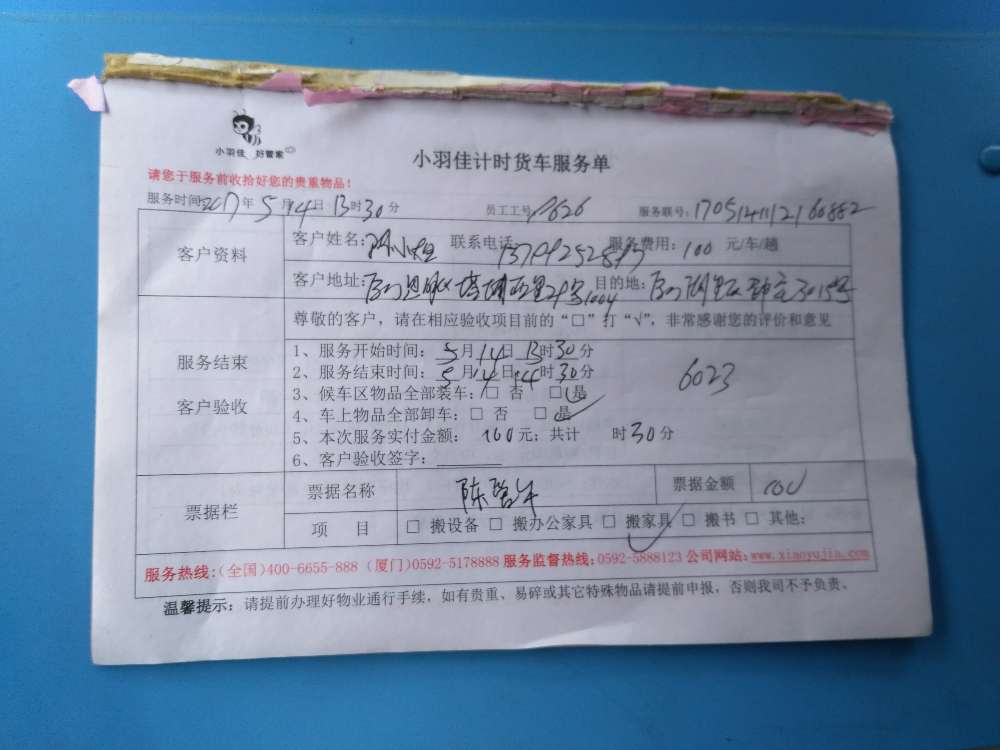 小羽佳 好管家
小羽佳计时货车服务单
请您于服务前收拾好您的贵重物品！
服务时间:2017年5月14日13时30分 员工工号: P626 服务联号: 1705141112160882
客户资料
客户姓名: 联系电话: 服务费用: 100 元/车/趟
客户地址: 目的地:
尊敬的客户，请在相应验收项目前的“□”打“√”，非常感谢您的评价和意见
服务结束
客户验收
1、服务开始时间: 5月14日13时30分
2、服务结束时间: 5月14日14时30分
6023
3、候车区物品全部装车: □ 否 □ 是
4、车上物品全部卸车: □ 否 □ 是
5、本次服务实付金额: 100元; 共计 时30分
6、客户验收签字:
票据栏
票据名称 陈 票据金额 100
项 目 □ 搬设备 □ 搬办公家具 □ 搬家具 □ 搬书 □ 其他:
服务热线:(全国)400-6655-888 (厦门)0592-5178888 服务监督热线:0592-5888123 公司网站:www.xiaoyujia.com
温馨提示: 请提前办理好物业通行手续，如有贵重、易碎或其它特殊物品请提前申报，否则我司不予负责。